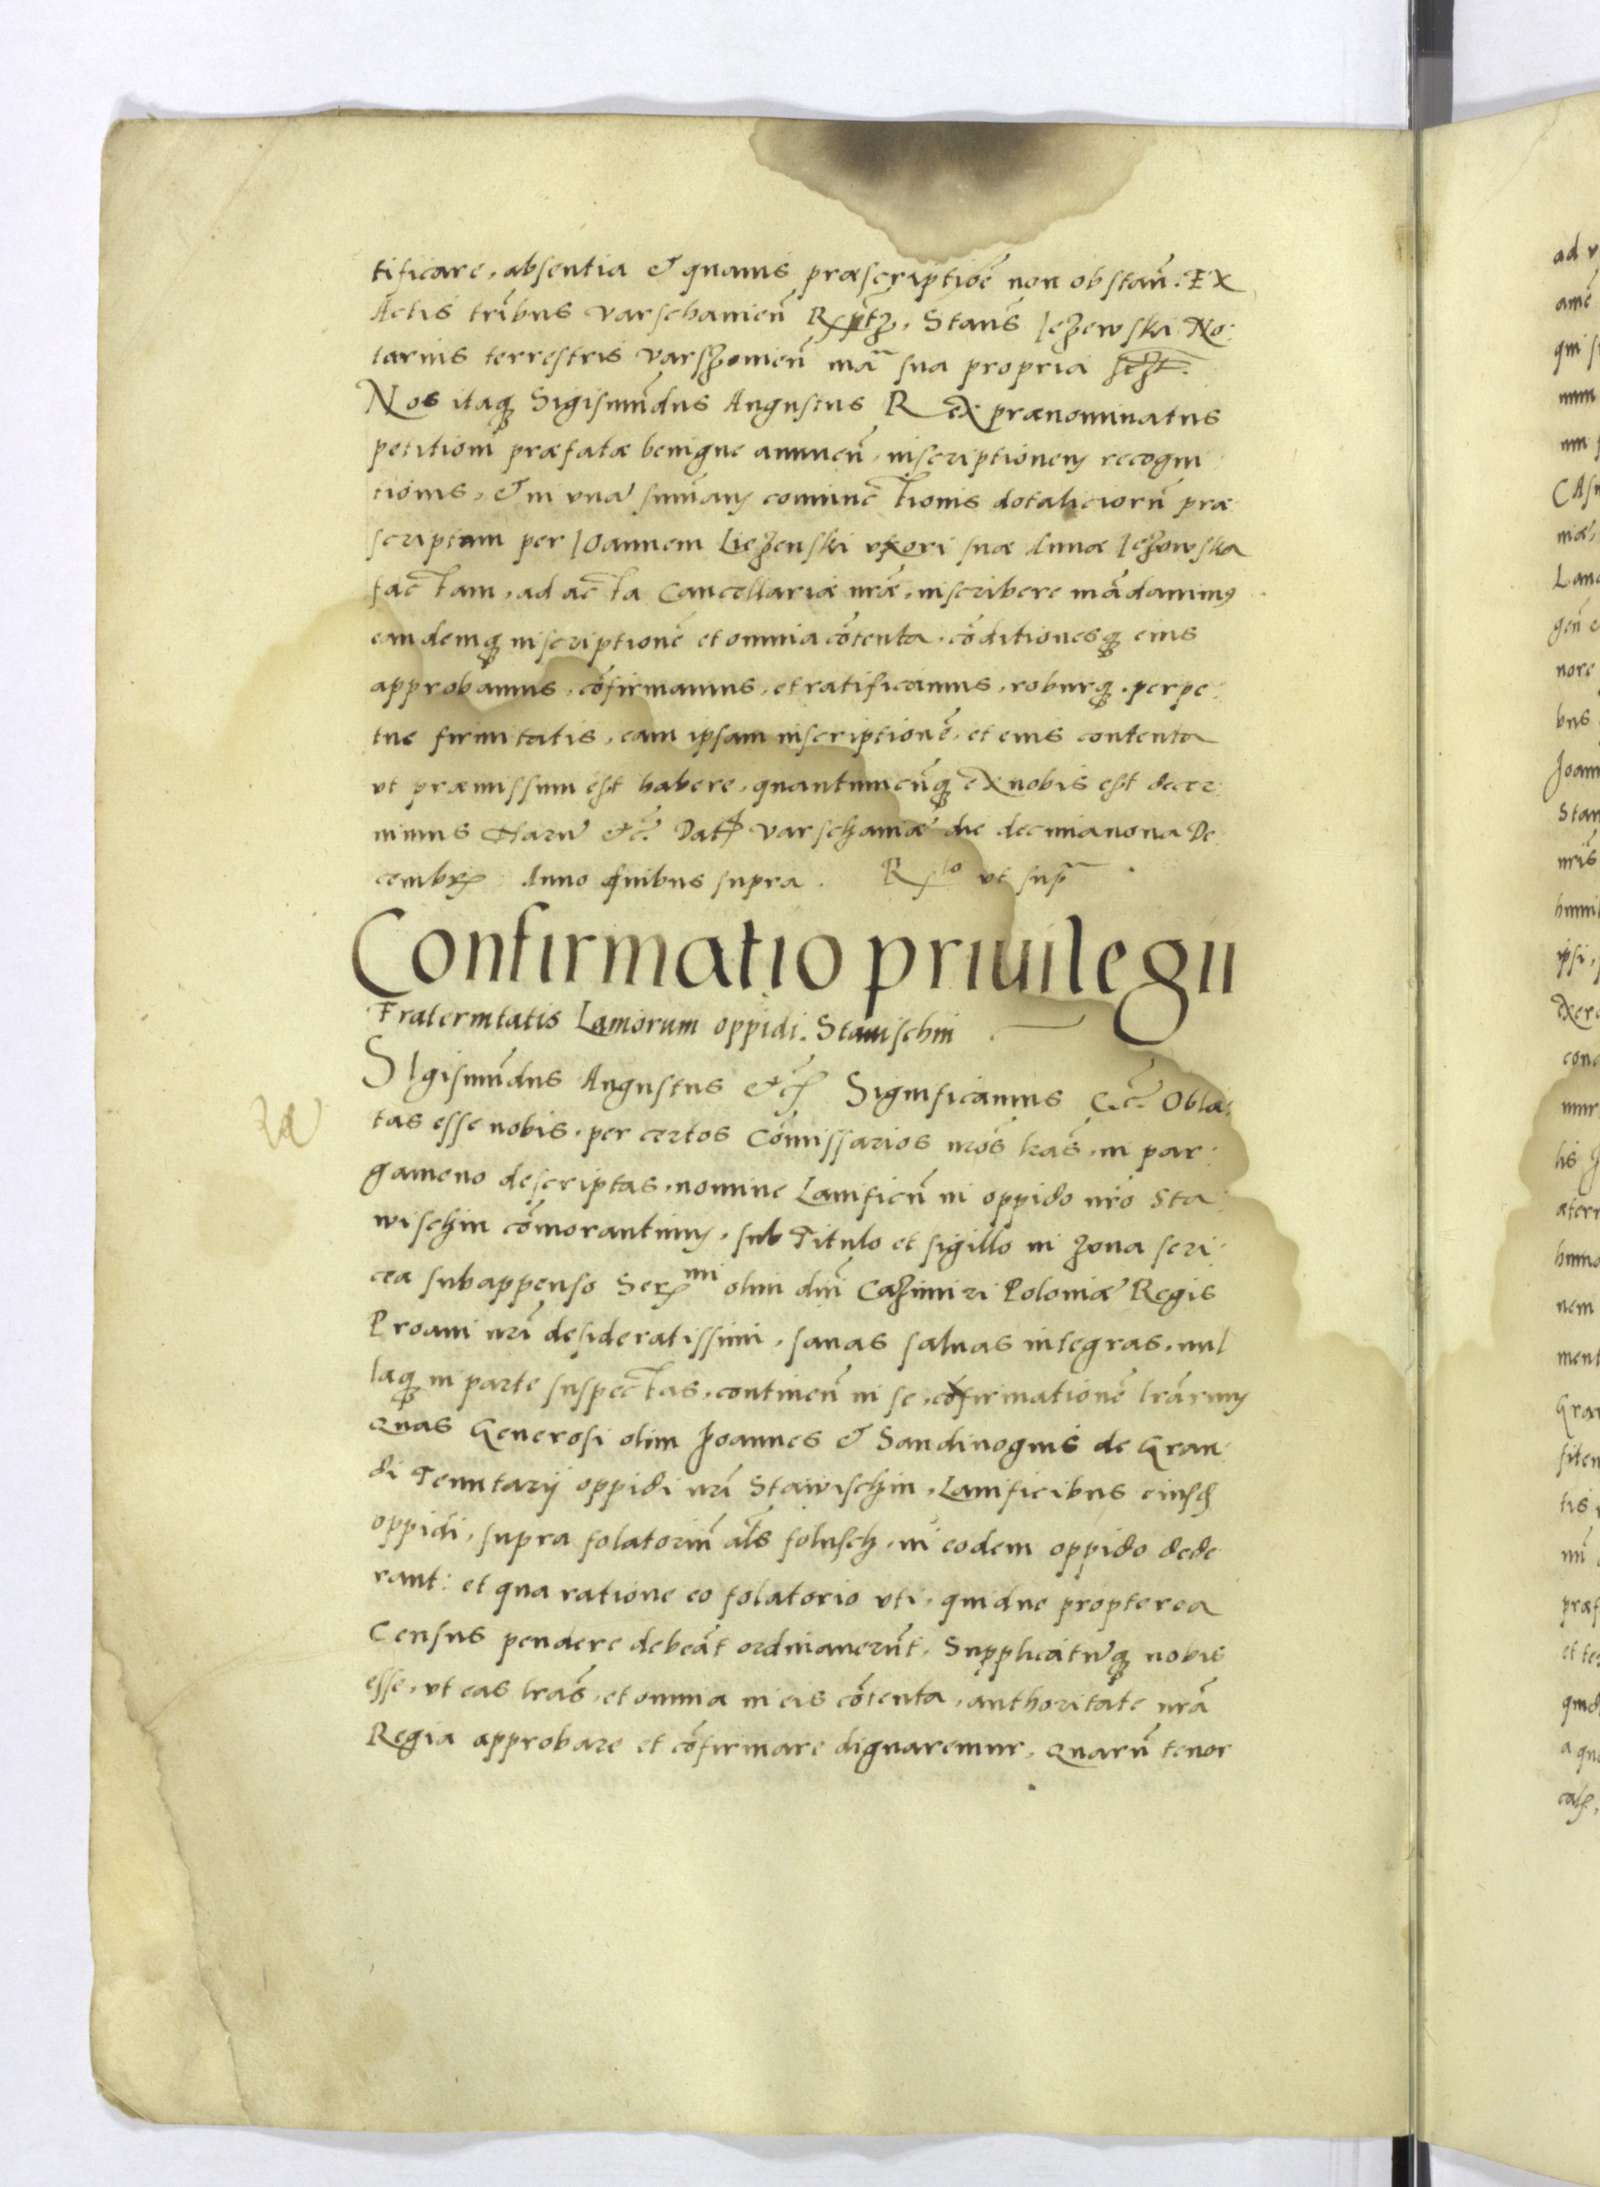 tificare, absentia & quauis præscriptiōe non obstan̄. Ex
Actis tr̄ribus Varschauien̄ Stan̄s Iezewski No:
tarius terrestris Varszouien̄ man̄ sua propria
Nos itaq Sigismūdus Augustus Rex prænominatus
petitioni præfatæ benigne annuen̄, inscriptionem recogni
tionis, & in vnā sum̄am coniunctionis dotaliciorū præ
scriptam per Ioannem Liezenski vxori suæ Annæ Iezowska
factam, ad acta Cancellariæ nr̄æ, inscribere mādauimus
eandemq inscriptionē et omnia cōtenta, cōditionesq eius
approbamus, cōfirmamus, et ratificamus, roburq perpe:
tue firmitatis, eam ipsam inscriptionē, et eius contenta
vt præmissum est habere, quantumcūq ex nobis est decer:
nimus Harū &c̄. Dat Varschauiæ die decimanona De
cembr Anno quibus supra. Rlo vt sup̄
Confirmatio priuilegii
Fraternitatis Laniorum oppidi Stawischin
SIgismūdus Augustus &c̄ Significamus &c̄. Obla:
tas esse nobis, per certos Cōmissarios nr̄os lr̄as, in par:
gameno descriptas, nomine Lanificū in oppido nr̄o Sta:
wischin cōmorantium, sub Titulo et sigillo in zona seri:
cea subappenso Sermi olim dn̄i Cazimiri Poloniæ Regis
Proaui nr̄i desideratissimi, sanas saluas integras, nul
laq in parte suspectas, continen̄ in se, cōfirmationē lr̄arum
quas Generosi olim Joannes & Sandiuogius de Gran:
di Tenutarij oppidi nr̄i Stawischin, Lanificibus eiusd
oppidi, supra folatoriū al̄s folusch, in eodem oppido dede
rant: et qua ratione eo folatorio vti, quidue propterea
Census pendere debeāt ordinauerūt. Supplicatūq nobis
esse, vt eas lr̄as, et omnia in eis cōtenta, authoritate nr̄a
Regia approbare et cōfirmare dignaremur, quarū tenor